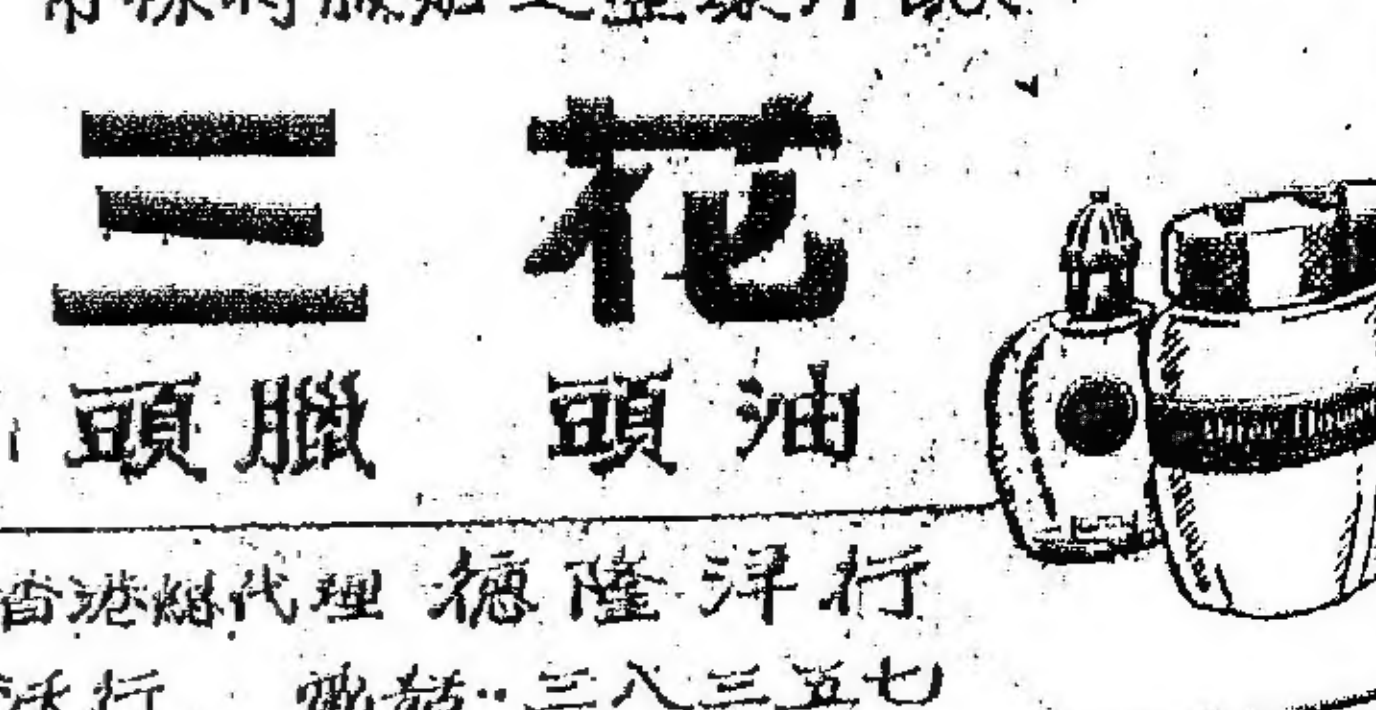 三花
頭臘 頭油
香港總代理 德隆洋行
洋行 電話:三八三五七